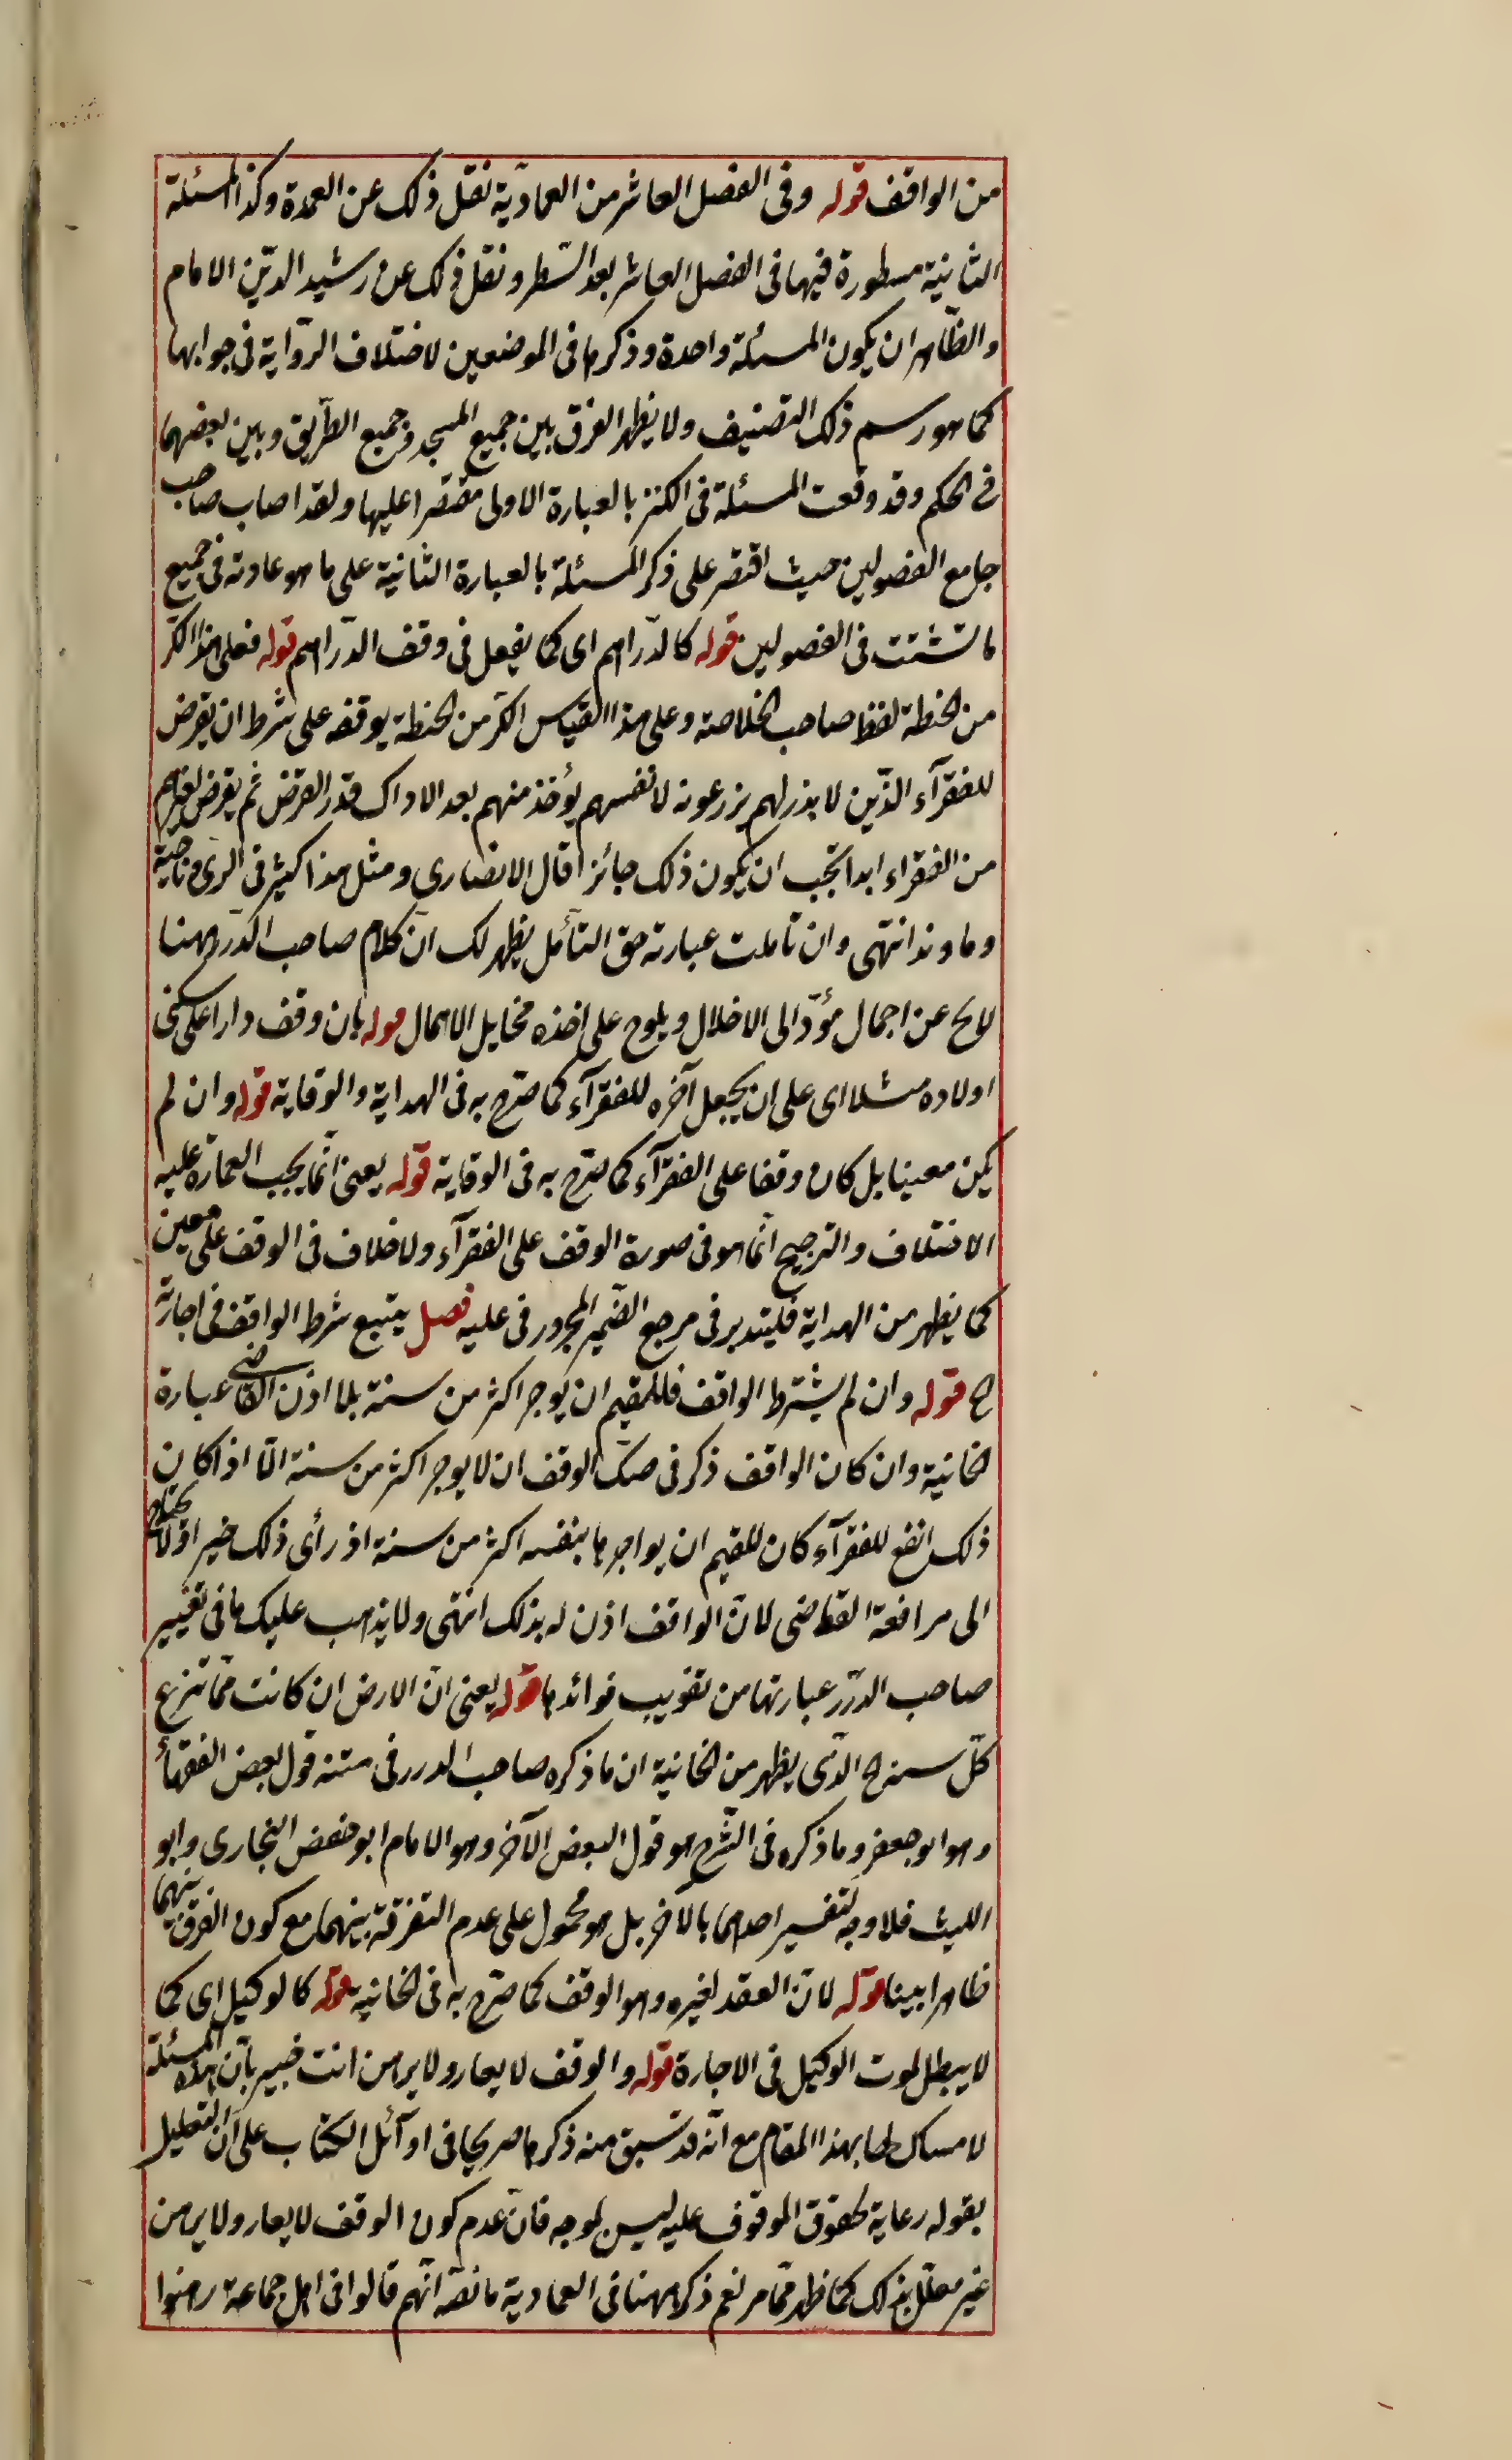 من الواقف قوله وفى الفصل العاشر من العمادية نقل ذلك عن العمدة وكذا المسئلة
الثانية مسطورة فيها فى الفصل العاشر بعد السطر ونقل ذلك عن رشيد الدين الامام
والظاهر ان يكون المسئلة واحدة وذكرها فى الموضعين لاختلاف الرواية فى جوابها
كما هو رسم ذلك التصنيف ولا يظهر الفرق بين جميع المسجد وجميع الطريق وبين بعضهما
فى الحكم وقد وقعت المسئلة فى الكنز بالعبارة الاولى مقتصرا عليها ولقد اصاب صاحب
جامع الفصولين حيث اقتصر على ذكر المسئلة بالعبارة الثانية على ما هو عادته فى جميع
ما تشتت فى الفصولين قوله كالدراهم اى كما يفعل فى وقف الدراهم قوله فعلى هذا الكر
من الحنطة لفظ صاحب الخلاصة وعلى هذا القياس الكر من الحنطة يوقفه على شرط ان يقرض
للفقرآء الذين لا بذر لهم يزرعونه لانفسهم يؤخذ منهم بعد الادراك قدر القرض ثم يقرض لغيرهم
من الفقراء ابدا يجب ان يكون ذلك جائزا قال الانصارى ومثل هذا كثير فى الرى وناحية
وماوند انتهى وان تأملت عبارته حق التأمل يظهر لك ان كلام صاحب الدرر ههنا
لايح عن اجمال مؤد الى الاخلال ويلوح على اخذه مخايل الاهمال قوله بان وقف دارا على سكنى
اولاده مثلا اى على ان يجعل آخره للفقرآء كما صرح به فى الهداية والوقاية قوله وان لم
يكن معينا بل كان وقفا على الفقرآء كما صرح به فى الوقاية قوله يعنى انما يجب العمارة عليه
الاختلاف والترجيح انما هو فى صورة الوقف على الفقرآء ولا خلاف فى الوقف على معين
كما يظهر من الهداية فليتدبر فى مرجع الضمير المجرور فى عليه فصل يتبع شرط الواقف فى اجارته
الخ قوله وان لم يشترط الواقف فللمقيم ان يوجر اكثر من سنة بلا اذن القاضى عبارة
الخانية وان كان الواقف ذكر فى صك الوقف ان لا يوجر اكثر من سنة الا اذا كان
ذلك انفع للفقرآء كان للقيم ان يواجرها بنفسه اكثر من سنة اذ رأى ذلك خيرا ولا يحتاج
الى مرافعة القاضى لان الواقف اذن له بذلك انتهى ولا يذهب عليك ما فى تغيير
صاحب الدرر عبارتها من تفويت فوائدها قوله يعنى ان الارض ان كانت مما تزرع
كل سنة الخ الذى يظهر من الخانية ان ما ذكره صاحب الدرر فى متنه قول بعض الفقهاء
وهو ابو جعفر وما ذكره فى الشرح هو قول البعض الآخر وهو الامام ابو حفص البخارى وابو
الليث فلا وجه لتفسير احدهما بالآخر بل هو محمول على عدم التفرقة بينهما مع كون الفرق بينهما
ظاهرا بينا قوله لان العقد لغيره وهو الوقف كما صرح به فى الخانية قوله كالوكيل اى كما
لا يبطل لموت الوكيل فى الاجارة قوله والوقف لا يعار ولا يرهن انت خبير بان هذه المسئلة
لا مساس لها بهذا المقام مع انه قد سبق منه ذكرها صريحا فى اوآئل الكتاب على ان التعليل
بقوله رعاية لحقوق الموقوف عليه ليس لموجه فان عدم كون الوقف لا يعار ولا يرهن
غير معلل بذلك كما ظهر مما مر نعم ذكر ههنا فى العمادية ما نصه انهم قالوا فى اهل جماعة رهنوا